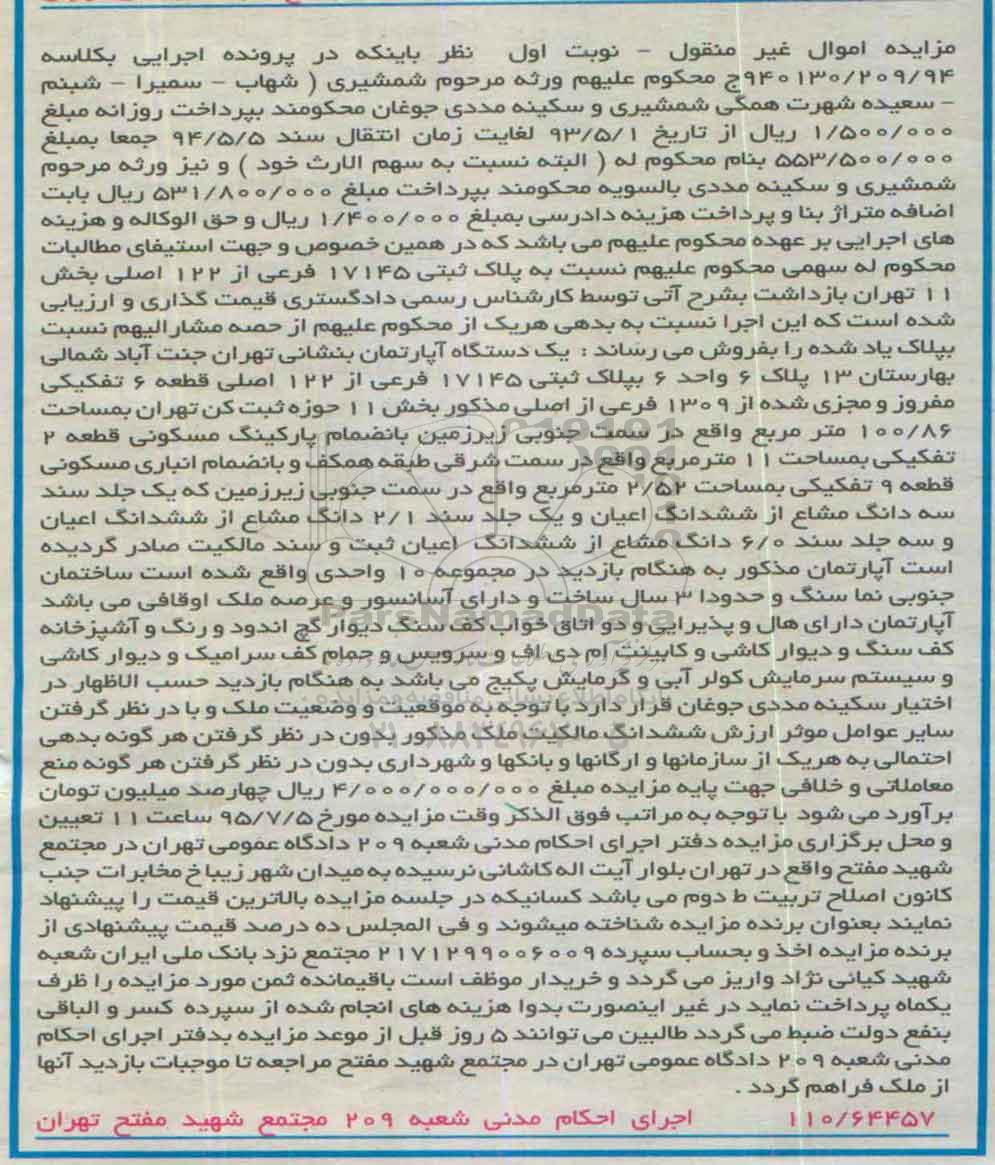 مزایده اموال غیر منقول - نوبت اول نظر باینکه در پرونده اجرایی بکلاسه
۹۴۰۱۳۰/۲۰۹/۹۴ج محکوم علیهم ورثه مرحوم شمشیری ( شهاب - سمیرا - شبنم
- سعیده شهرت همگی شمشیری و سکینه مددی جوغان محکومند بپرداخت روزانه مبلغ
۱/۵۰۰/۰۰۰ ریال از تاریخ ۹۳/۵/۱ لغایت زمان انتقال سند ۹۴/۵/۵ جمعا بمبلغ
۵۵۳/۵۰۰/۰۰۰ بنام محکوم له ( البته نسبت به سهم الارث خود ) و نیز ورثه مرحوم
شمشیری و سکینه مددی بالسویه محکومند بپرداخت مبلغ ۵۳۱/۸۰۰/۰۰۰ ریال بابت
اضافه متراژ بنا و پرداخت هزینه دادرسی بمبلغ ۱/۴۰۰/۰۰۰ ریال و حق الوکاله و هزینه
های اجرایی بر عهده محکوم علیهم می باشد که در همین خصوص و جهت استیفای مطالبات
محکوم له سهمی محکوم علیهم نسبت به پلاک ثبتی ۱۷۱۴۵ فرعی از ۱۲۲ اصلی بخش
۱۱ تهران بازداشت بشرح آتی توسط کارشناس رسمی دادگستری قیمت گذاری و ارزیابی
شده است که این اجرا نسبت به بدهی هریک از محکوم علیهم از حصه مشارالیهم نسبت
بپلاک یاد شده را بفروش می رساند : یک دستگاه آپارتمان بنشانی تهران جنت آباد شمالی
بهارستان ۱۳ پلاک ۶ واحد ۶ بپلاک ثبتی ۱۷۱۴۵ فرعی از ۱۲۲ اصلی قطعه ۶ تفکیکی
مفروز و مجزی شده از ۱۳۰۹ فرعی از اصلی مذکور بخش ۱۱ حوزه ثبت کن تهران بمساحت
۱۰۰/۸۶ متر مربع واقع در سمت جنوبی زیرزمین بانضمام پارکینگ مسکونی قطعه ۲
تفکیکی بمساحت ۱۱ مترمربع واقع در سمت شرقی طبقه همکف و بانضمام انباری مسکونی
قطعه ۹ تفکیکی بمساحت ۲/۵۲ مترمربع واقع در سمت جنوبی زیرزمین که یک جلد سند
سه دانگ مشاع از ششدانگ اعیان و یک جلد سند ۲/۱ دانگ مشاع از ششدانگ اعیان
و سه جلد سند ۶/۰ دانگ مشاع از ششدانگ اعیان ثبت و سند مالکیت صادر گردیده
است آپارتمان مذکور به هنگام بازدید در مجموعه ۱۰ واحدی واقع شده است ساختمان
جنوبی نما سنگ و حدودا ۳ سال ساخت و دارای آسانسور و عرصه ملک اوقافی می باشد
ParsNamadData
آپارتمان دارای هال و پذیرایی و دو اتاق خواب کف سنگ دیوار گچ اندود و رنگ و آشپزخانه
کف سنگ و دیوار کاشی و کابینت ام دی اف و سرویس و حمام کف سرامیک و دیوار کاشی
و سیستم سرمایش کولر آبی و گرمایش پکیج می باشد به هنگام بازدید حسب الاظهار در
اختیار سکینه مددی جوغان قرار دارد با توجه به موقعیت و وضعیت ملک و با در نظر گرفتن
سایر عوامل موثر ارزش ششدانگ مالکیت ملک مذکور بدون در نظر گرفتن هر گونه بدهی
احتمالی به هریک از سازمانها و ارگانها و بانکها و شهرداری بدون در نظر گرفتن هر گونه منع
معاملاتی و خلافی جهت پایه مزایده مبلغ ۴/۰۰۰/۰۰۰/۰۰۰ ریال چهارصد میلیون تومان
برآورد می شود با توجه به مراتب فوق الذکر وقت مزایده مورخ ۹۵/۷/۵ ساعت ۱۱ تعیین
و محل برگزاری مزایده دفتر اجرای احکام مدنی شعبه ۲۰۹ دادگاه عمومی تهران در مجتمع
شهید مفتح واقع در تهران بلوار آیت اله کاشانی نرسیده به میدان شهر زیبا خ مخابرات جنب
کانون اصلاح تربیت ط دوم می باشد کسانیکه در جلسه مزایده بالاترین قیمت را پیشنهاد
نمایند بعنوان برنده مزایده شناخته میشوند و فی المجلس ده درصد قیمت پیشنهادی از
برنده مزایده اخذ و بحساب سپرده ۲۱۷۱۲۹۹۰۰۶۰۰۹ مجتمع نزد بانک ملی ایران شعبه
شهید کیانی نژاد واریز می گردد و خریدار موظف است باقیمانده ثمن مورد مزایده را ظرف
یکماه پرداخت نماید در غیر اینصورت بدوا هزینه های انجام شده از سپرده کسر و الباقی
بنفع دولت ضبط می گردد طالبین می توانند ۵ روز قبل از موعد مزایده بدفتر اجرای احکام
مدنی شعبه ۲۰۹ دادگاه عمومی تهران در مجتمع شهید مفتح مراجعه تا موجبات بازدید آنها
از ملک فراهم گردد .
۱۱۰/۶۴۴۵۷ اجرای احکام مدنی شعبه ۲۰۹ مجتمع شهید مفتح تهران